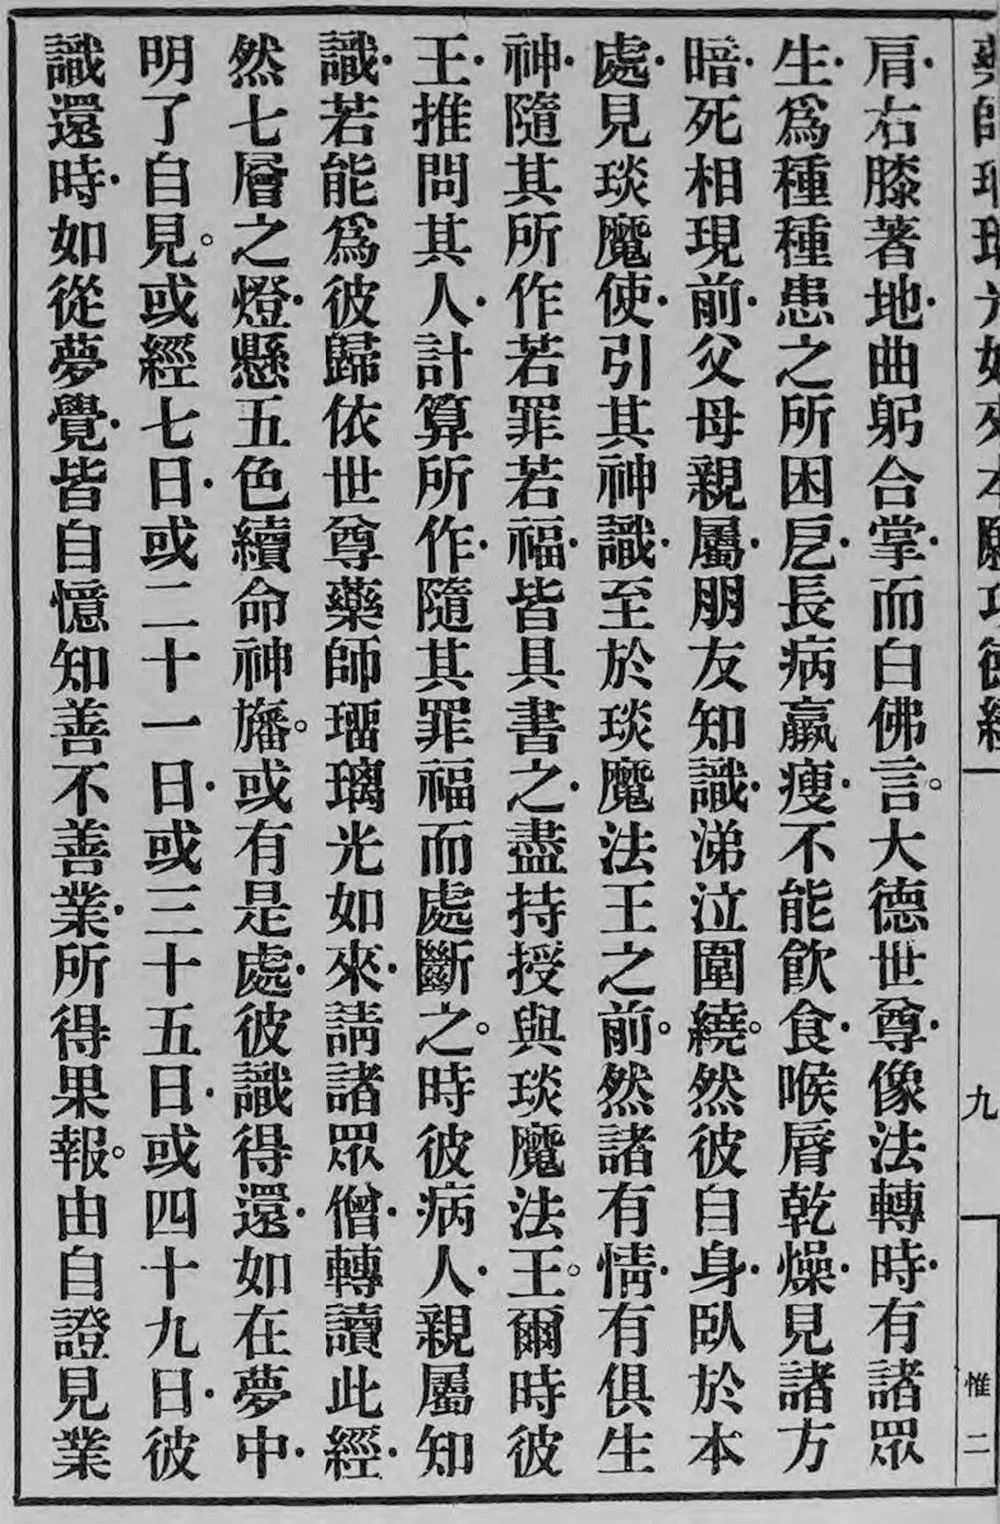 藥師琉璃光如來本願功德經
九
惟二
肩·右膝著地·曲躬合掌·而白佛言。大德世尊·像法轉時·有諸眾
生·爲種種患之所困戹·長病羸瘦·不能飮食·喉脣乾燥·見諸方
暗·死相現前·父母親屬·朋友知識·涕泣圍繞。然彼自身·臥於本
處·見琰魔使·引其神識·至於琰魔法王之前。然諸有情·有俱生
神·隨其所作若罪若福·皆具書之·盡持授與琰魔法王。爾時彼
王·推問其人·計算所作·隨其罪福而處斷之。時彼病人·親屬知
識·若能爲彼歸依世尊藥師瑠璃光如來·請諸眾僧·轉讀此經·
然七層之燈·懸五色續命神旛。或有是處·彼識得還·如在夢中·
明了自見。或經七日·或二十一日·或三十五日·或四十九日·彼
識還時·如從夢覺·皆自憶知善不善業·所得果報。由自證見業